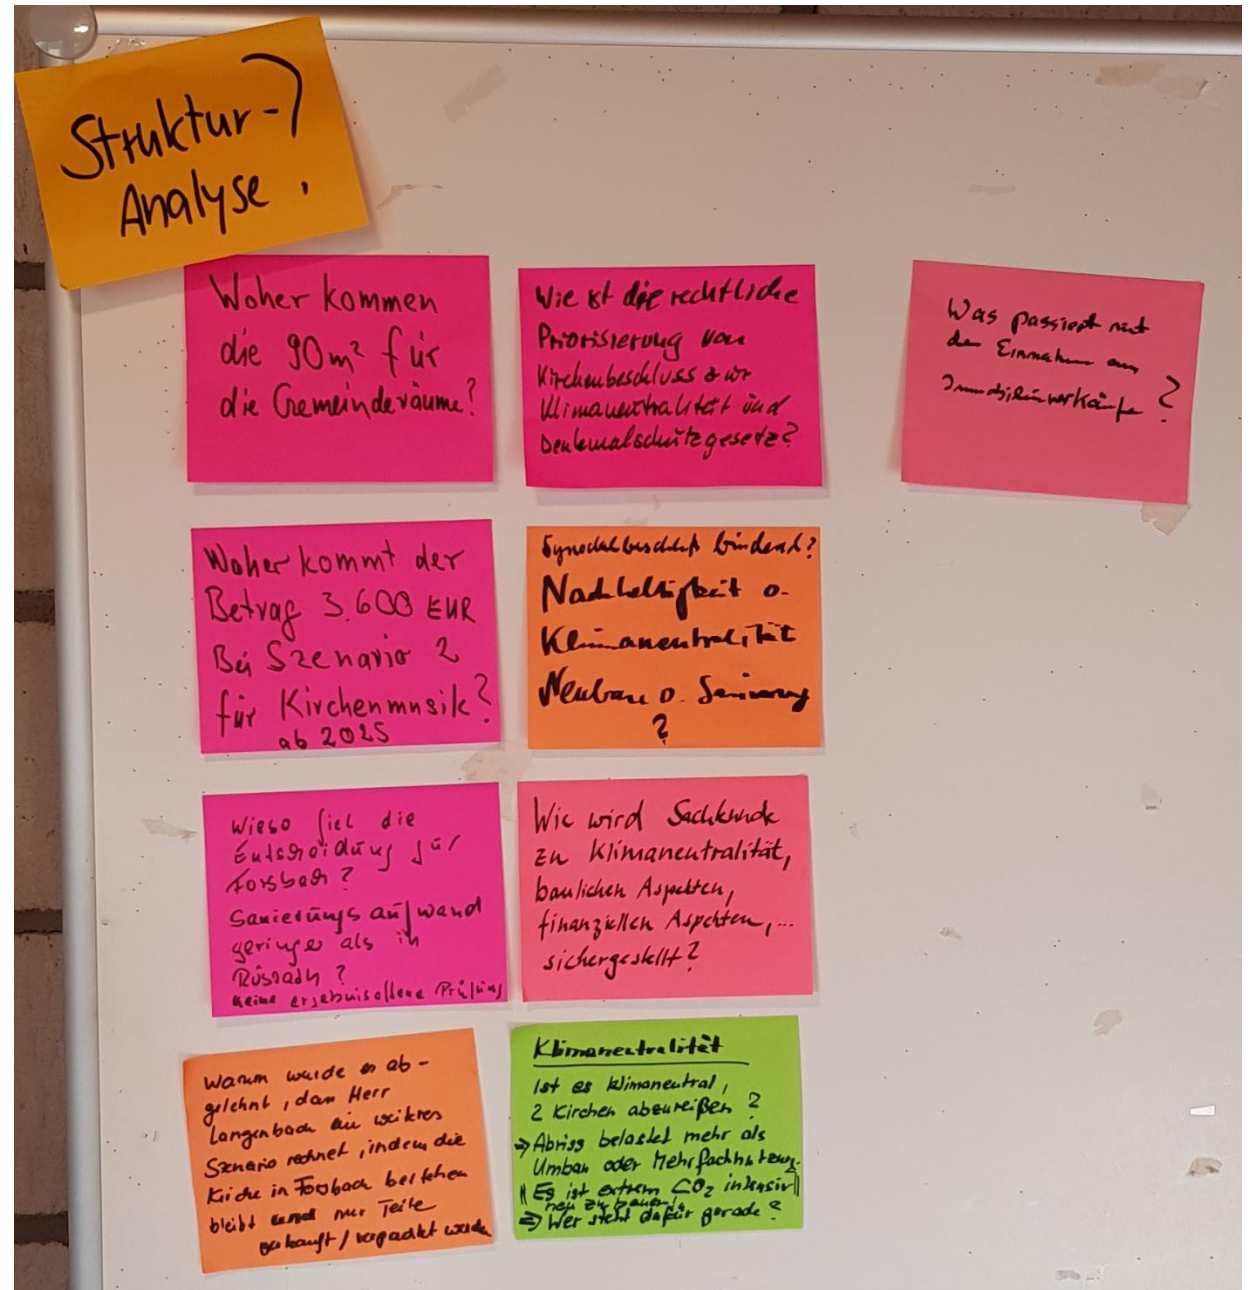 Struktur-
Analyse ?
Woher kommen
die 90m² für
die Gemeinderäume?
Woher kommt der
Betrag 3.600 EUR
Bei Szenario 2
für Kirchenmusik?
ab 2025
Wieso fiel die
Entscheidung für
Forsbach?
Sanierungsaufwand
geringer als in
Rösrath?
keine ergebnisoffene Prüfung
Warum wurde es ab-
gelehnt, dass Herr
Langenbach ein weiteres
Szenario rechnet, indem die
Kirche in Forsbach bestehen
bleibt und nur Teile
verkauft/verpachtet werden
Wie ist die rechtliche
Priorisierung von
Kirchenbeschluss zur
Klimaneutralität und
Denkmalschutzgesetz?
Synodalbeschluß bindend?
Nachhaltigkeit o.
Klimaneutralität
Neubau o. Sanierung
?
Wie wird Sachkunde
zu Klimaneutralität,
baulichen Aspekten,
finanziellen Aspekten, ...
sichergestellt?
Klimaneutralität
Ist es klimaneutral,
2 Kirchen abzureißen?
⇒ Abriss belastet mehr als
Umbau oder Mehrfachnutzung.
!! Es ist extrem CO₂ intensiv !!
neu zu bauen!
⇒ Wer steht dafür gerade?
Was passiert mit
den Einnahmen aus
Immobilienverkäufe ?